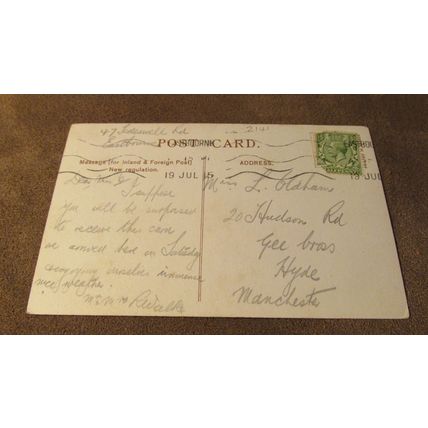 47 Rd
Eastbourne
2141
POST CARD.
Message (for Inland & Foreign Post)
New regulation.
ADDRESS.
19 JUL 15
Dear Mrs O I suppose
you will be surprised
to receive this card
we arrived here on Saturday
enjoying ourselves immense
nice weather.
Mr & Mrs R Walker
Miss L. Oldham
20 Hudson Rd
Gee Cross
Hyde
Manchester